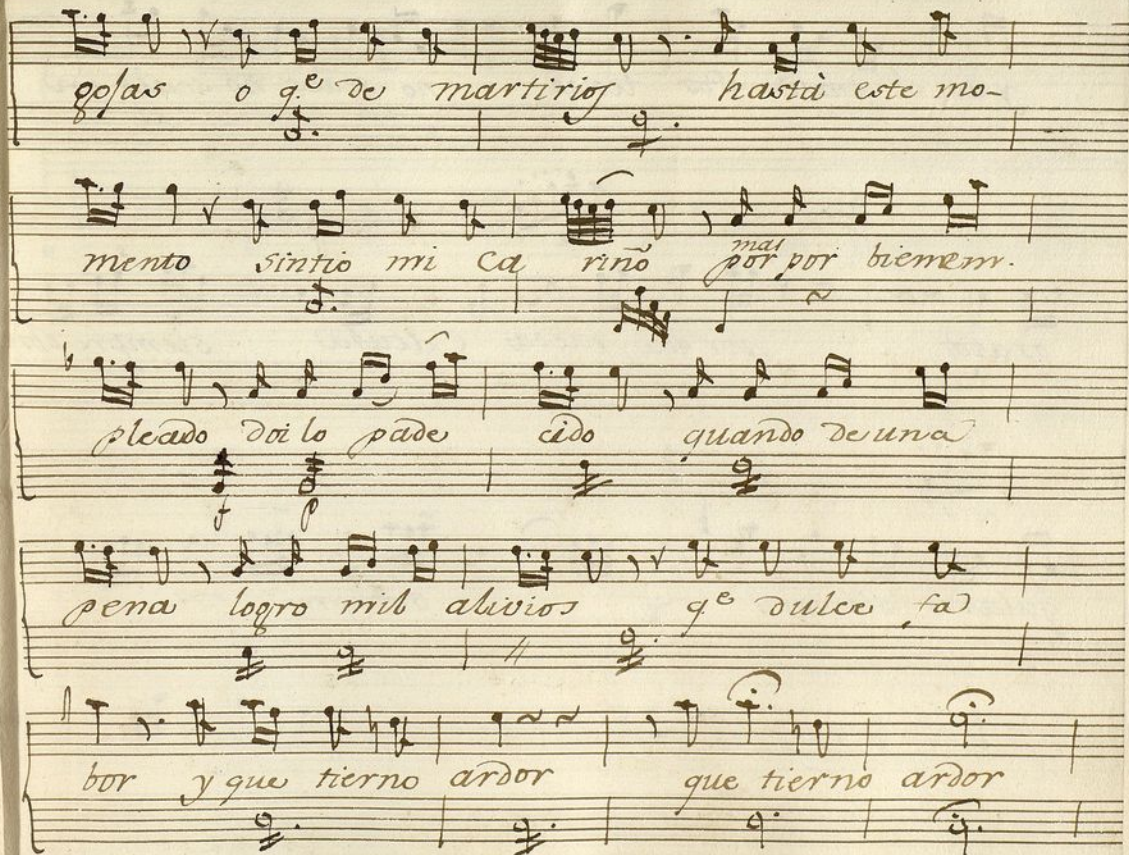 gosas o q.e de martirios hastà este mo-
mento sintio mi Ca riño mas por por bien em.
pleado doi lo pade cido quando de una
f p
pena logro mil alivios q.e dulce fa
bor y que tierno ardor que tierno ardor